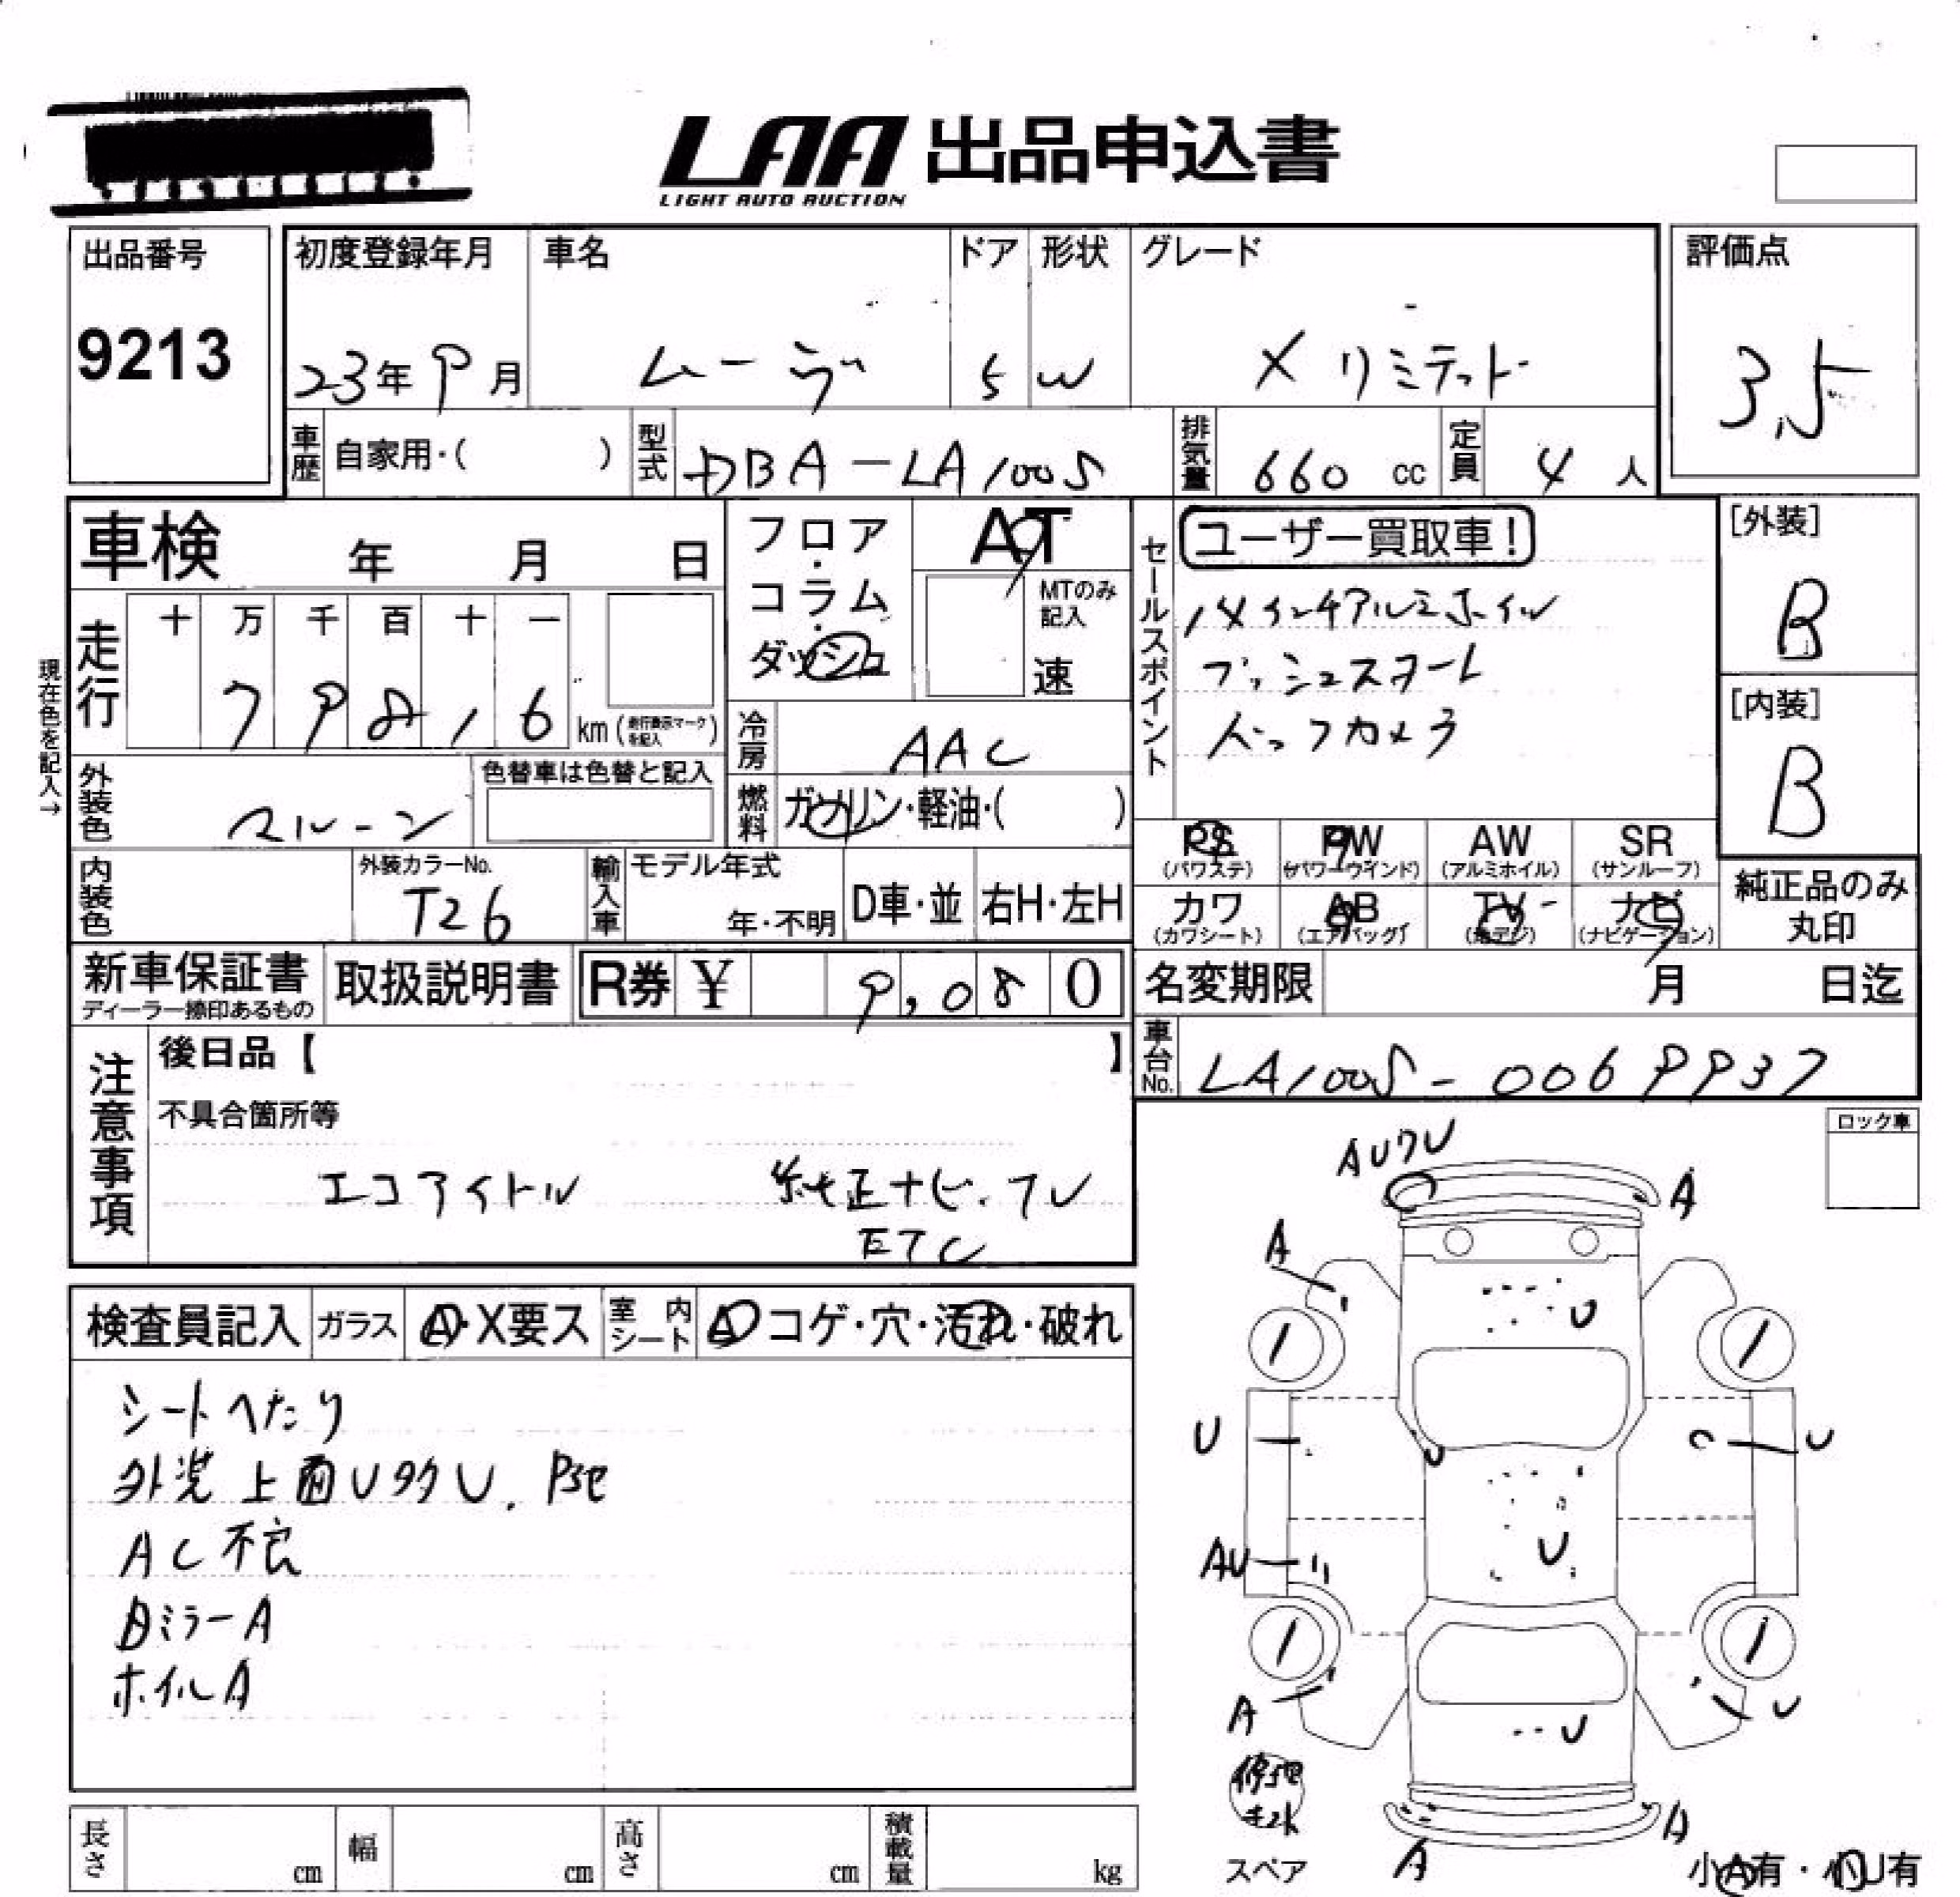 LAA 出品申込書
LIGHT AUTO AUCTION
出品番号
9213
初度登録年月
23年9月
車名
ムーヴ
ドア
5
形状
W
グレード
X リミテット
評価点
3.5
車歴 自家用・( )
型式 DBA-LA100S
排気量 660 cc
定員 4 人
車検 年 月 日
フロア・コラム・ダッシュ
AT
MTのみ記入
速
セールスポイント
ユーザー買取車!
14インチアルミホイル
プッシュスタート
バックカメラ
[外装]
B
[内装]
B
現在色を記入→
走行 十 万 千 百 十 一
7 9 8 1 6 km (走行表示マークを記入)
冷房 AAC
外装色 マルーン
色替車は色替と記入
燃料 ガソリン・軽油・( )
PS (パワステ)
PW (パワーウインド)
AW (アルミホイル)
SR (サンルーフ)
カワ (カワシート)
AB (エアバッグ)
TV (地デジ)
ナビ (ナビゲーション)
純正品のみ丸印
内装色
外装カラーNo.
T26
輸入車 モデル年式
年・不明
D車・並
右H・左H
新車保証書
ディーラー捺印あるもの
取扱説明書
R券 ¥ 9,080
名変期限 月 日迄
車台No. LA100S-0069937
注意事項
後日品【 】
不具合箇所等
エコアイドル 純正ナビ.TV
ETC
ロック車
検査員記入
ガラス A・X要ス
室内シート A コゲ・穴・汚れ・破れ
シートへたり
外装上面U多U.
AC不良
Bミラー A
ホイル A
A
A
A
U
U
U
U
U
AU
A
U
U
修理キット
スペア
A
A
小A有・小U有
長さ cm
幅 cm
高さ cm
積載量 kg